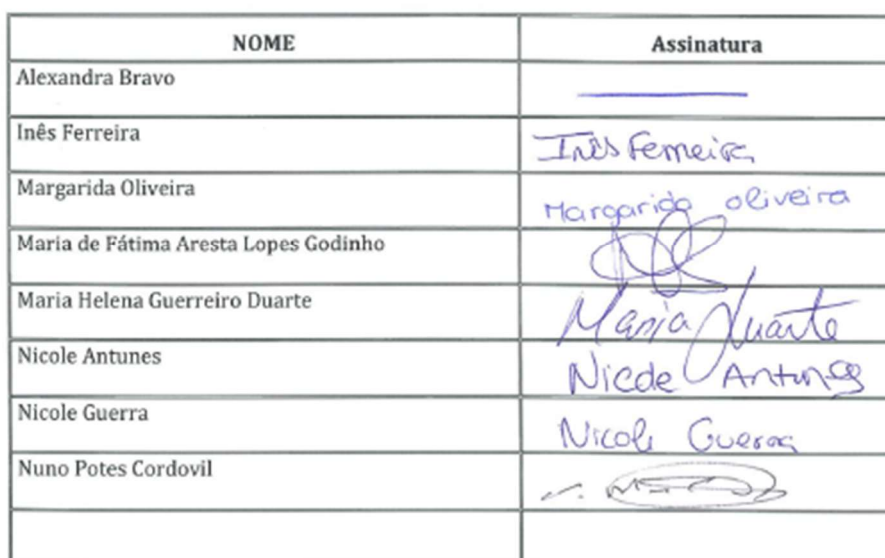 NOME Assinatura
Alexandra Bravo
Inês Ferreira Inês Ferreira
Margarida Oliveira Margarida oliveira
Maria de Fátima Aresta Lopes Godinho
Maria Helena Guerreiro Duarte Maria Duarte
Nicole Antunes Nicole Antunes
Nicole Guerra Nicole Guerra
Nuno Potes Cordovil